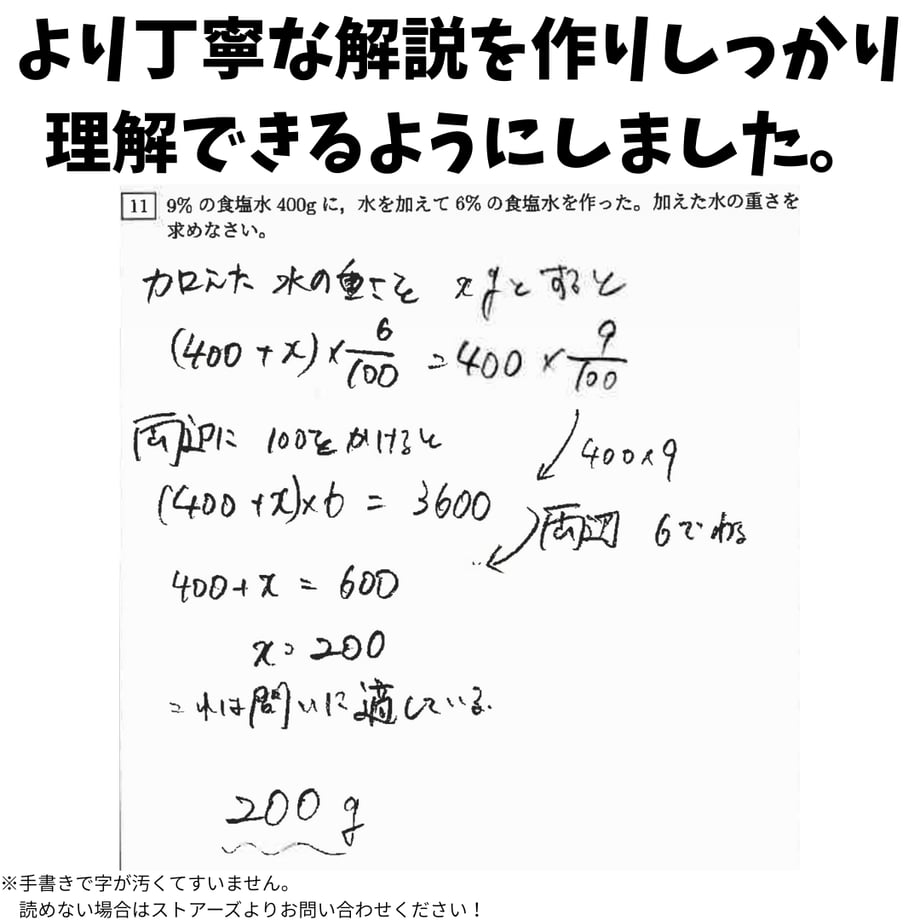 より丁寧な解説を作りしっかり
理解できるようにしました。
11 9% の食塩水 400g に，水を加えて 6% の食塩水を作った。加えた水の重さを
求めなさい。
加えた 水の重さを xgとすると
(400 + x) × 6/100 = 400 × 9/100
両辺に 100をかけると
400×9
(400 + x)×6 = 3600
両辺 6でわる
400 + x = 600
x = 200
これは問いに適している。
200 g
※手書きで字が汚くてすいません。
読めない場合はストアーズよりお問い合わせください！